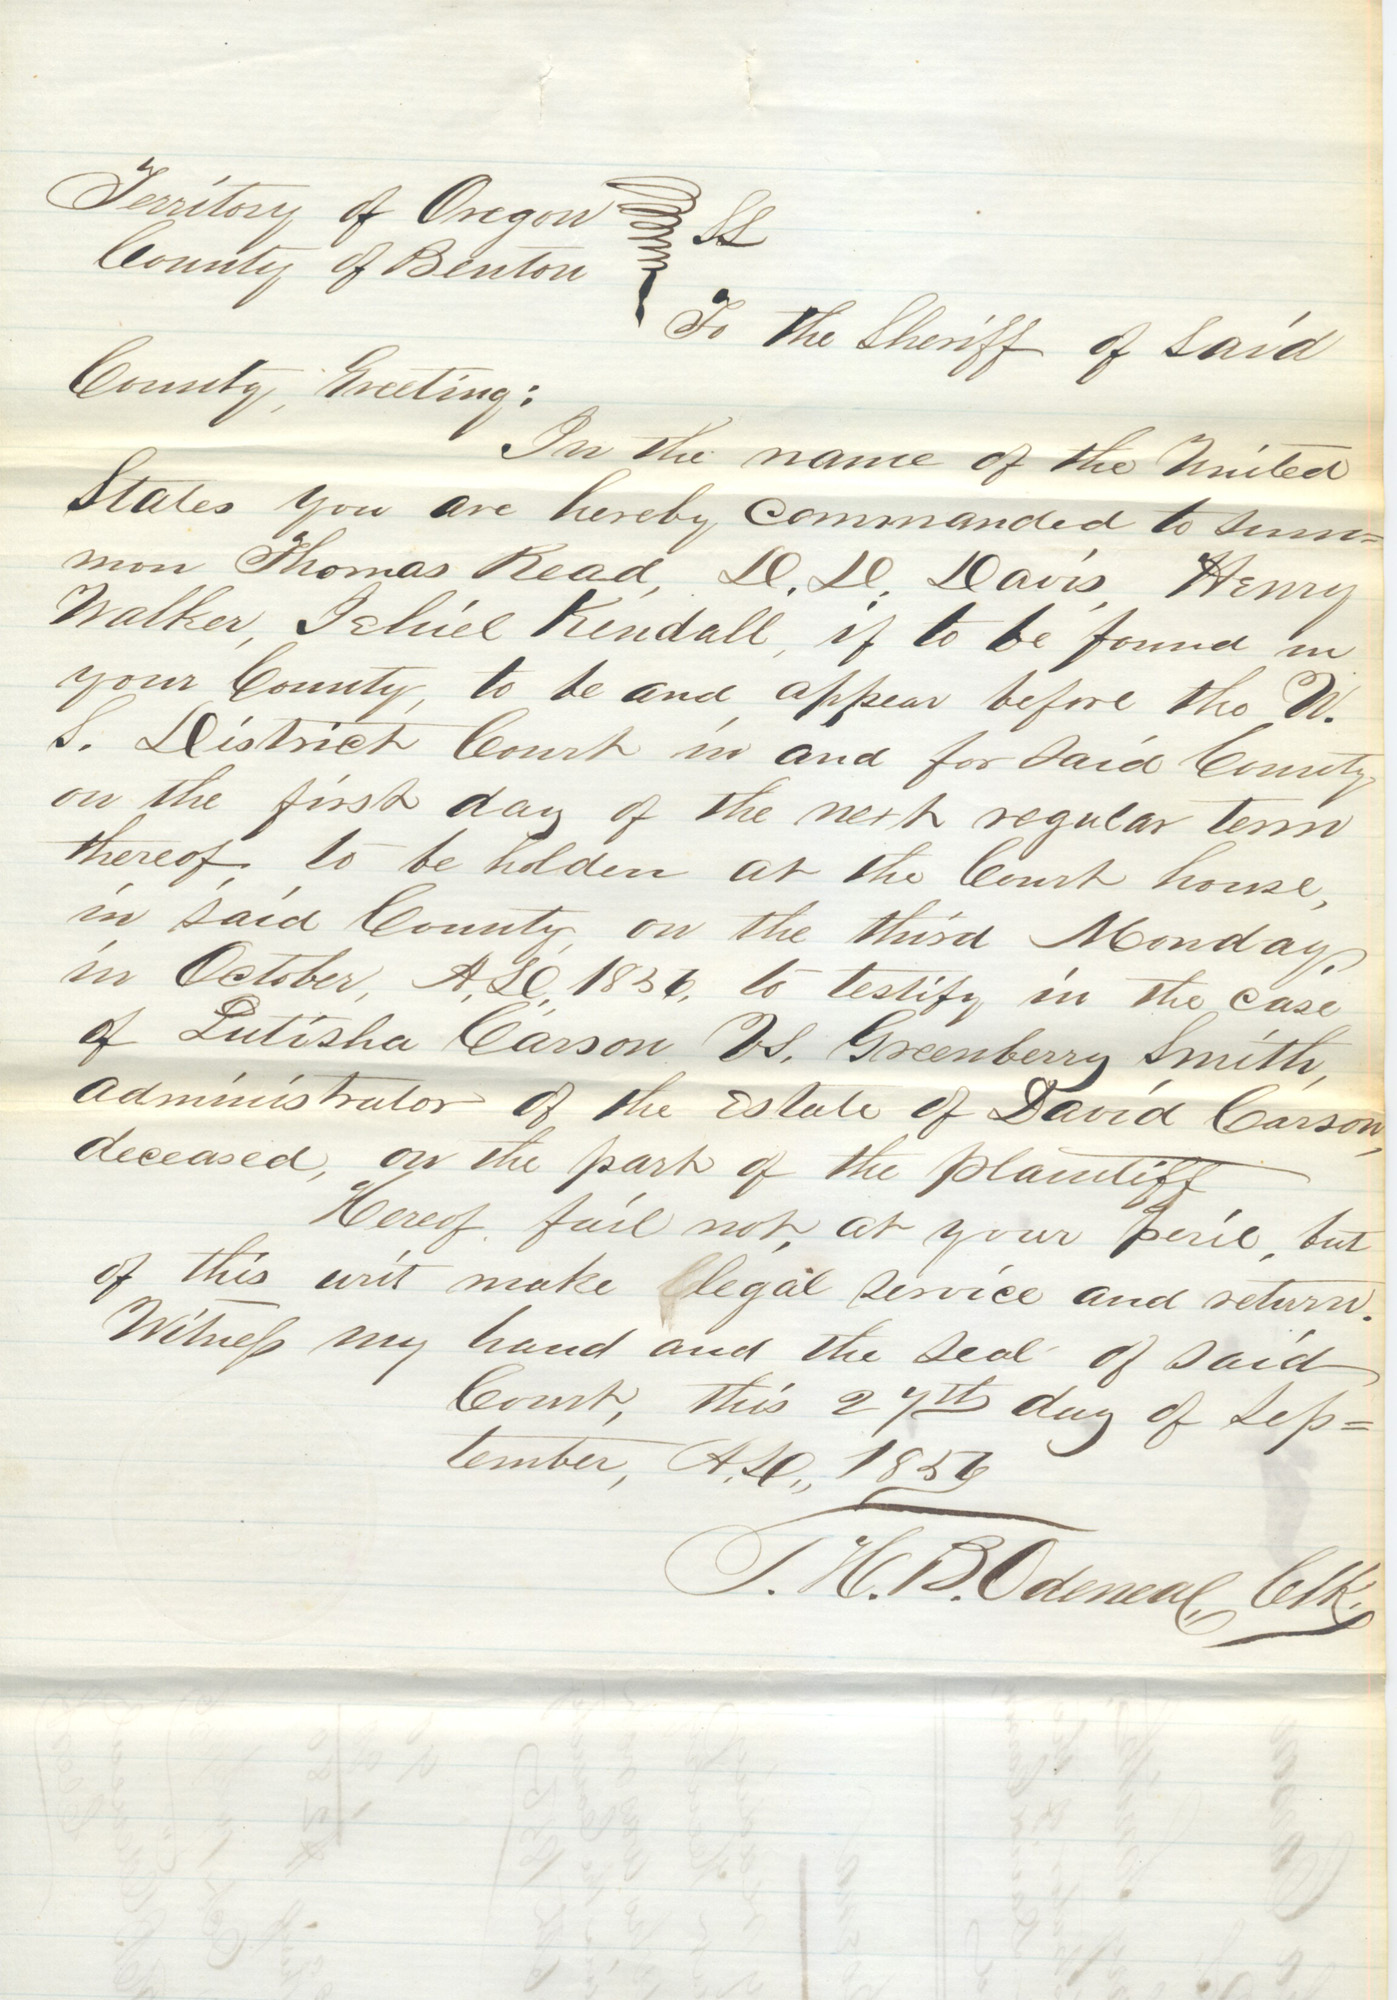 Territory of Oregon
County of Benton
SS
To the Sheriff of said
County, Greeting:
In the name of the United
States you are hereby commanded to sum=
mon Thomas Read, D. D. Davis, Henry
Walker, Jehiel Kendall, if to be found in
your County, to be and appear before the U.
S. District Court in and for said County
on the first day of the next regular term
thereof, to be holden at the Court house,
in said County, on the third Monday,
in October, A.D. 1856, to testify in the case
of Lutisha Carson Vs. Greenberry Smith,
administrator of the Estate of David Carson,
deceased, on the part of the plaintiff
Hereof fail not, at your peril, but
of this writ make legal service and return.
Witness my hand and the seal of said
Court, this 27th day of Sep=
tember, A.D., 1856
T. H. B. Odeneal, Clk.